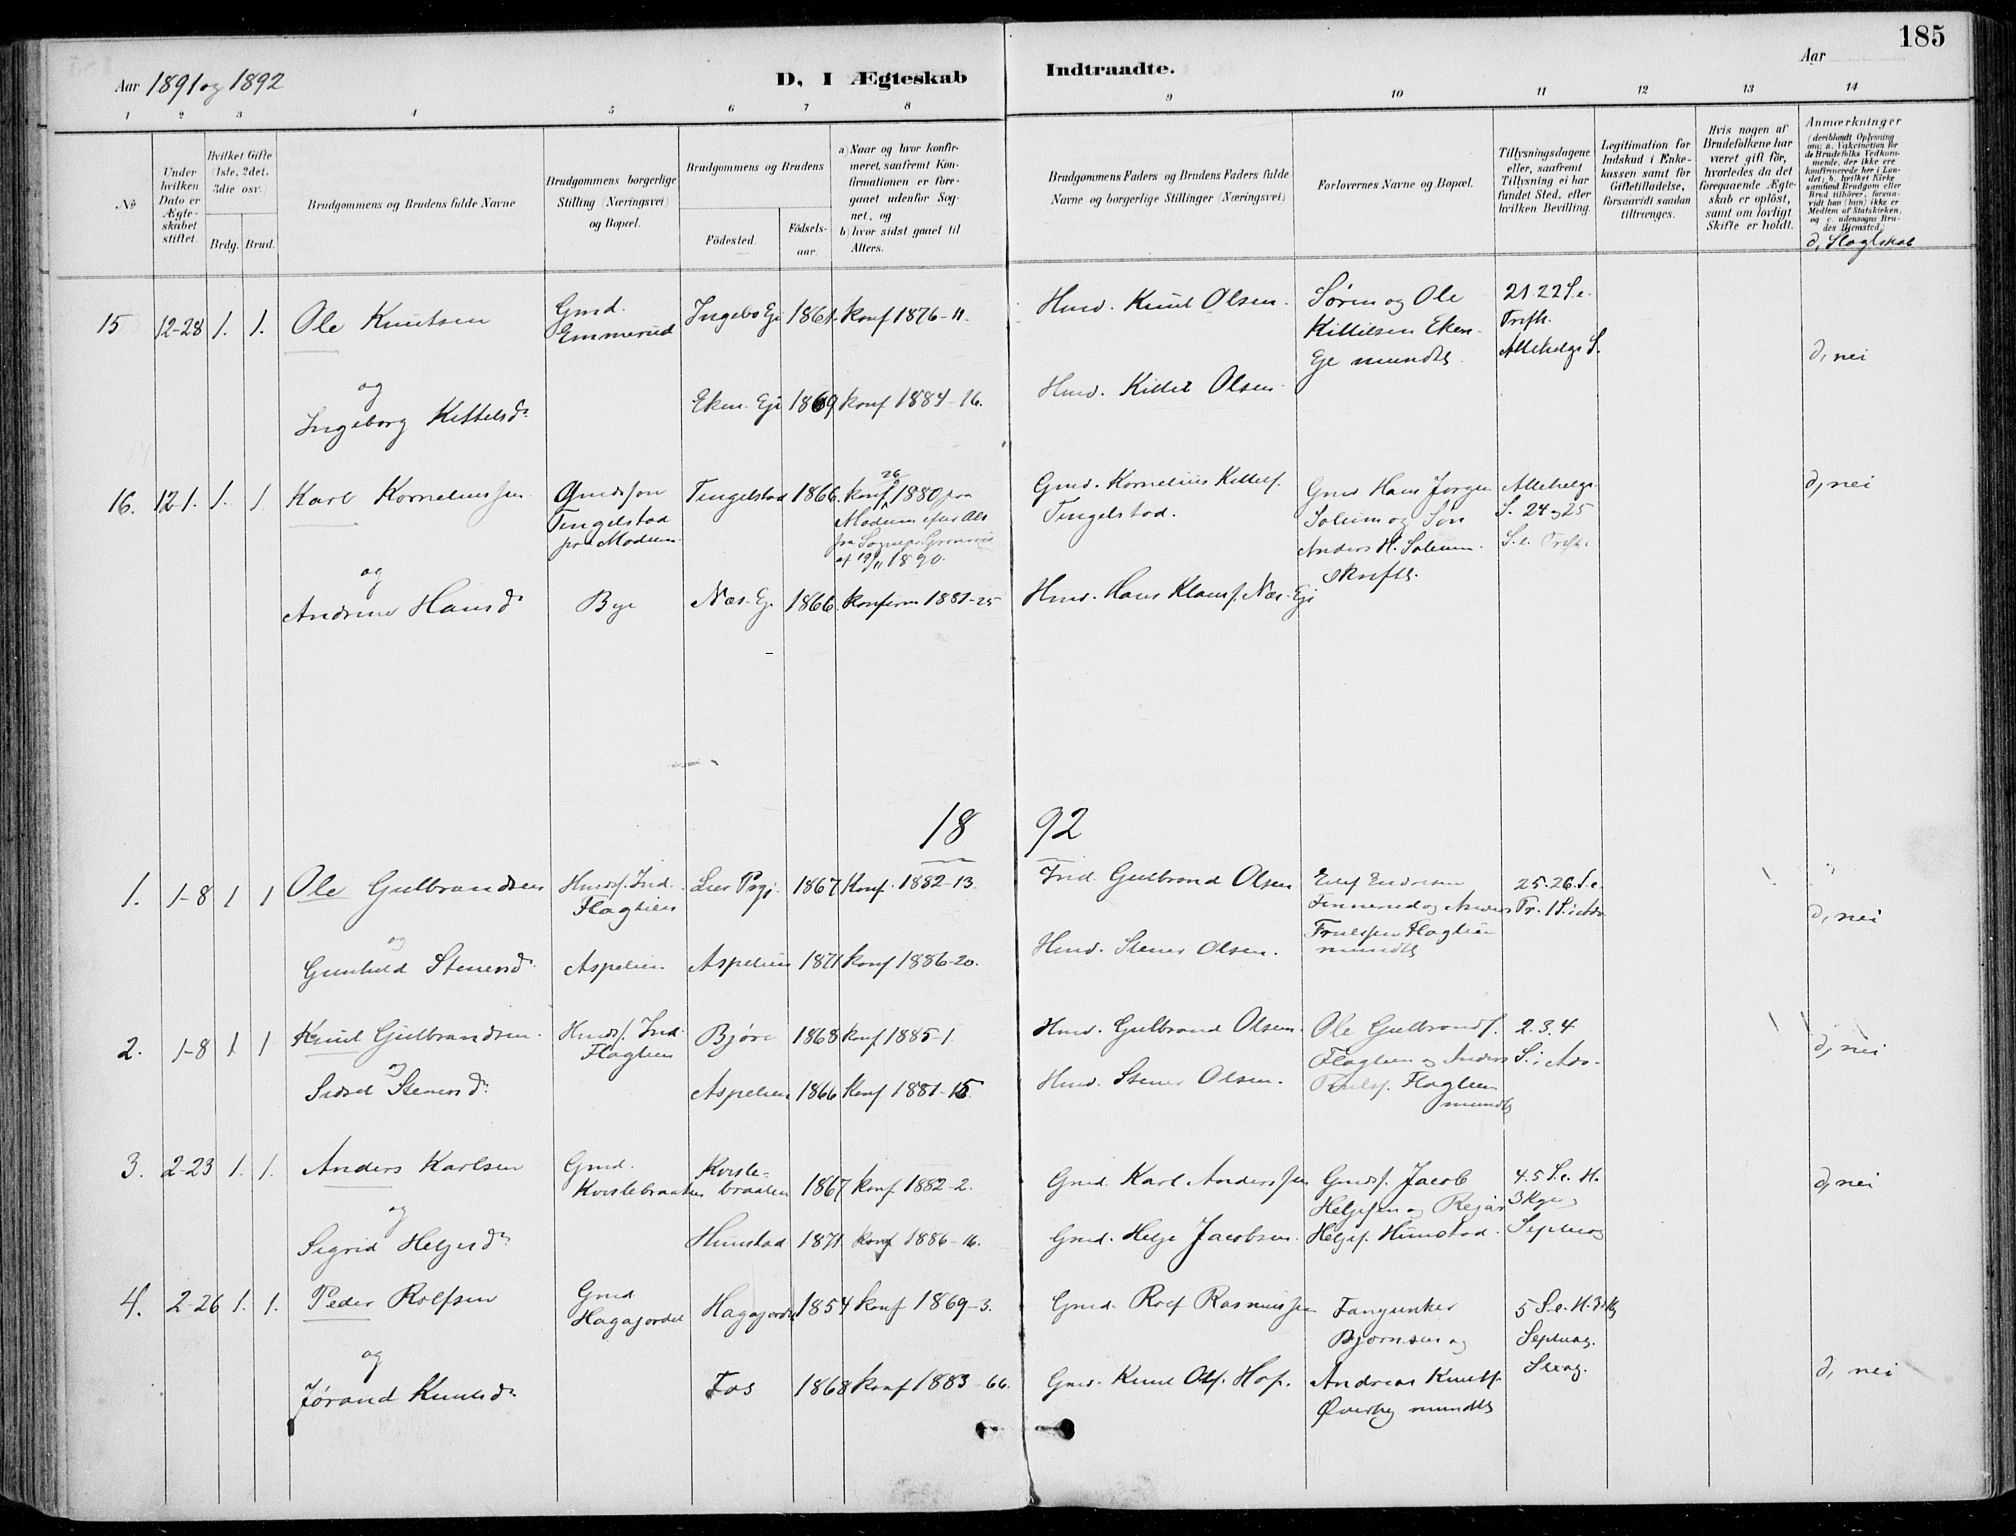 185
Aar 1891 og 1892
D, I Ægteskab Indtraadte.
Aar
1 2 3 4 5 6 7 8 9 10 11 12 13 14
No
Under hvilken Dato er Ægteskabet stiftet.
Hvilket Gifte (1ste, 2det, 3die osv.)
Brdg. Brud.
Brudgommens og Brudens fulde Navne
Brudgommens borgerlige Stilling (Næringsvei) og Bopæl.
Brudgommens og Brudens
Fødested.
Fødselsaar.
a) Naar og hvor konfirmeret, saafremt Konfirmationen er foregaaet udenfor Sognet, og
b) hvor sidst gaaet til Alters.
Brudgommens Faders og Brudens Faders fulde Navne og borgerlige Stillinger (Næringsvei)
Forlovernes Navne og Bopæl.
Tillysningsdagene eller, saafremt Tillysning ei har fundet Sted, efter hvilken Bevilling.
Legitimation for Indskud i Enkekassen samt for Giftetilladelse, forsaavidt saadan tiltrænges.
Hvis nogen af Brudefolkene har været gift før, hvorledes da det foregaaende Ægteskab er opløst, samt om lovligt Skifte er holdt.
Anmærkninger (deriblandt Oplysning om: a. Vakcination for de Brudefolks Vedkommende, der ikke ere konfirmerede her i Landet; b. hvilket Kirkesamfund Brudgom eller Brud tilhører, forsaavidt han (hun) ikke er Medlem af Statskirken, og c. udensogns Brudes Hjemsted.)
d, Slægtskab
15 12-28 1. 1. Ole Knutsen Gmd. Emmerud Ingebo Eje 1861. Konf 1876-11. Hmd. Knut Olsen. Søren og Ole Kittilsen Eken Eje mundtl. 21 22 S. e. Trefh. Allehelgs S. d, nei
og
Ingeborg Kittelsdr Eken Eje 1869 Konf 1884-16. Hmd. Kittel Olsen.
16. 12-1. 1. 1 Karl Korneliussen Gmdssøn Tingelstad paa Modum Tingelstad 1866. Konf. 26/ 1880 paa Modum efter Att fra Sognepr. af 19/11 1890. Gmd. Kornelius Kittelsf. Tingelstad. Gmd Hans Jørgen Solum og Søn Anders H. Solum. Skriftl. Allehelgs. S. 24 og 25 S. e. Trefh. d, nei
og
Andrine Hansdr Bye Næs-Eje 1866 Konfirm 1881-25 Hmd. Hans Klausf. Næs-Eje
18 92
1. 1-8 1 1 Ole Gulbrandsen Hmdsf. Ind. Flaglien Lier Prgj. 1867 Konf. 1882-13. Ind. Gulbrand Olsen Finnerud og Anders Trulssen Flaglien mundtl 25. 26. S. e. Tr. 1 S. i Adv d, nei
og
Gunhild Stenersdr Aspelien Aspelien 1871 Konf 1886-20. Hmd. Stener Olsen.
2. 1-8 1 1 Knut Gulbrandsen. Hmdsf. Ind. Flaglien Bjøre 1868 Konf 1885-1. Hmd. Gulbrand Olsen Ole Gulbrandsf. Flaglien og Anders Trulsf. Flaglien mundtl 2. 3. 4 S. i Adv. d, nei
og
Sidsel Stenersdr Aspelien 1866 Konf 1881-15 Hmd. Stener Olsen.
3. 2-23 1. 1. Anders Karlsen Gmd. Kvislebraaten Kvislebraaten 1867 Konf 1882-2. Gmd. Karl Anderssen Gmdsf. Jacob Helgesen og Rejar Helgesf. Hunstad. 4. 5 S. e. H. 3 Kger og Septuag d, nei
og
Sigrid Helgesdr Hunstad 1871 Konf 1886-16. Gmd. Helge Jacobsen.
4. 2-26 1. 1. Peder Rolfsen Gmd Hagajordet Hagajordet 1854 Konf 1869-3. Gmd. Rolf Rasmussen Bjørnsen og Andreas Knutsf. Øverby mundtl 5 S. e. H. 3 Kg Septuag. Sexag. d, nei
og
Jørand Knutsdr Fos 1868 Konf 1883-66. Gmd. Knut Olsf. Hof.